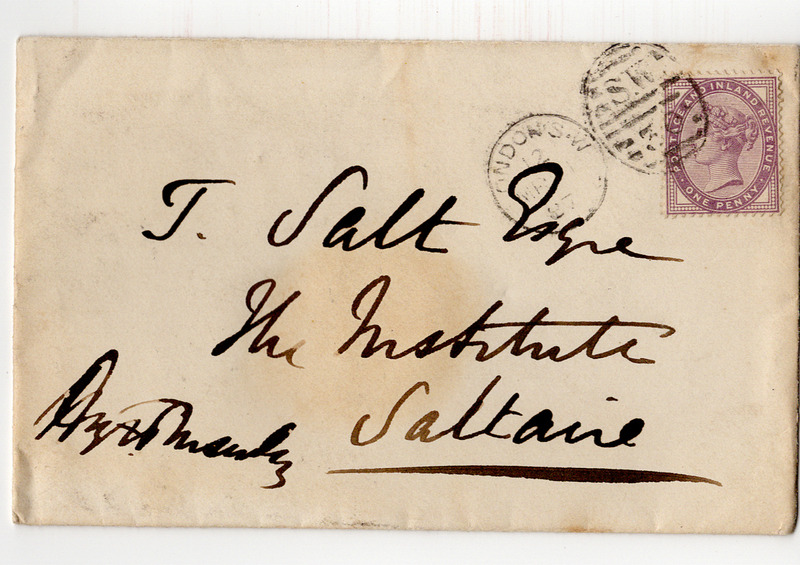 POSTAGE AND INLAND REVENUE
ONE PENNY
S.W
LONDON.S.W
12
97
T. Salt Esqre
The Institute
Saltaire